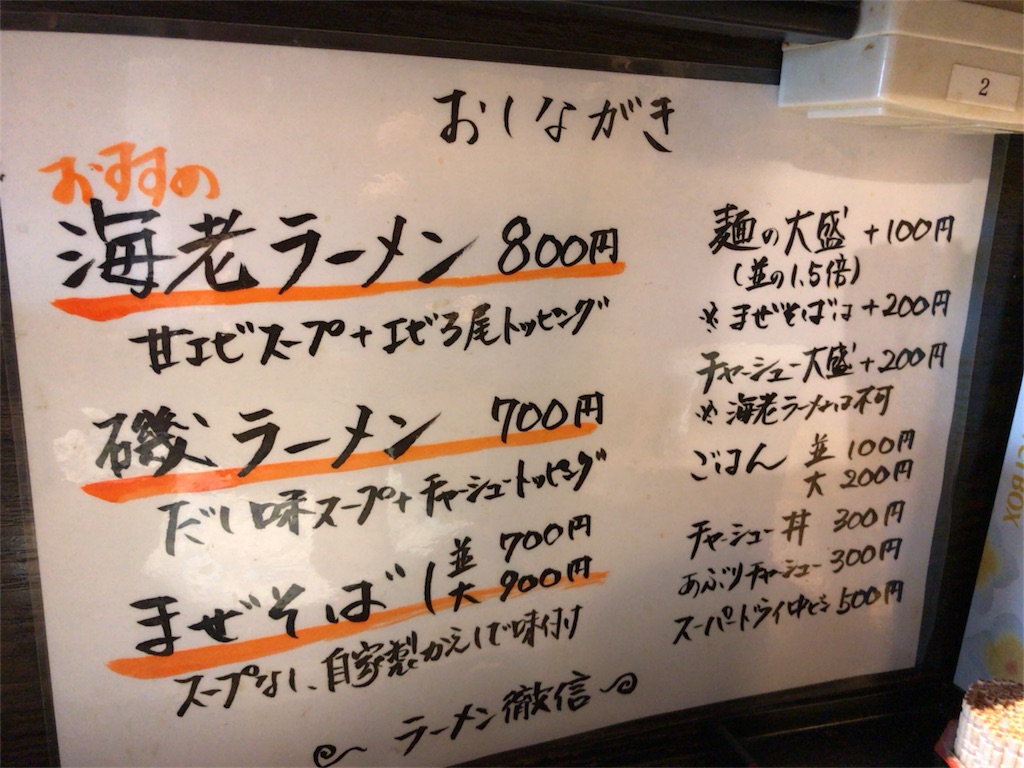 おしながき
おすすめ
海老ラーメン 800円
甘エビスープ+エビ3尾トッピング
磯ラーメン 700円
だし味スープ+チャーシュートッピング
まぜそば 並 700円
大 900円
スープなし、自家製かえしで味付け
ラーメン徹信
麺の大盛 +100円
(並の1.5倍)
※まぜそばは+200円
チャーシュー大盛+200円
※海老ラーメンは不可
ごはん 並 100円
大 200円
チャーシュー丼 300円
あぶりチャーシュー 300円
スーパードライ中ビン 500円
2
BOX